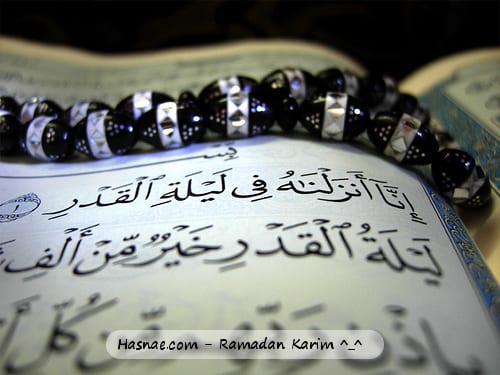 إِنَّا أَنزَلْنَاهُ فِي لَيْلَةِ الْقَدْرِ ١
لَيْلَةُ الْقَدْرِ خَيْرٌ مِّنْ أَلْفِ
كُلِّ
Hasnae.com - Ramadan Karim ^_^